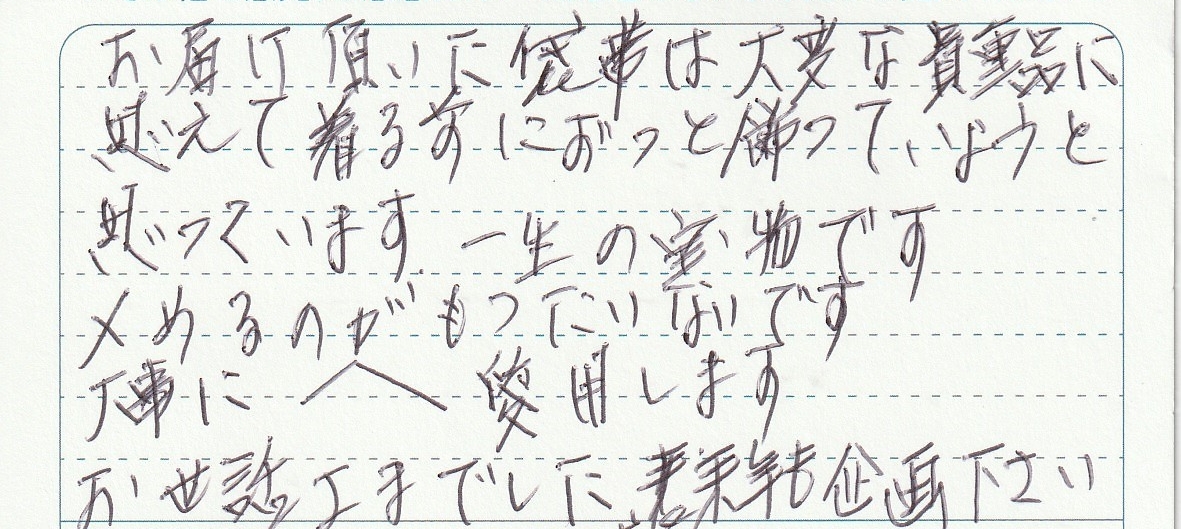 お届け頂いた袋帯は大変な貴重品に
思えて着る前にずっと飾っていようと
思っています 一生の宝物です
〆めるのがもったいないです
大事に 使用します
お世話さまでした 来年も企画下さい